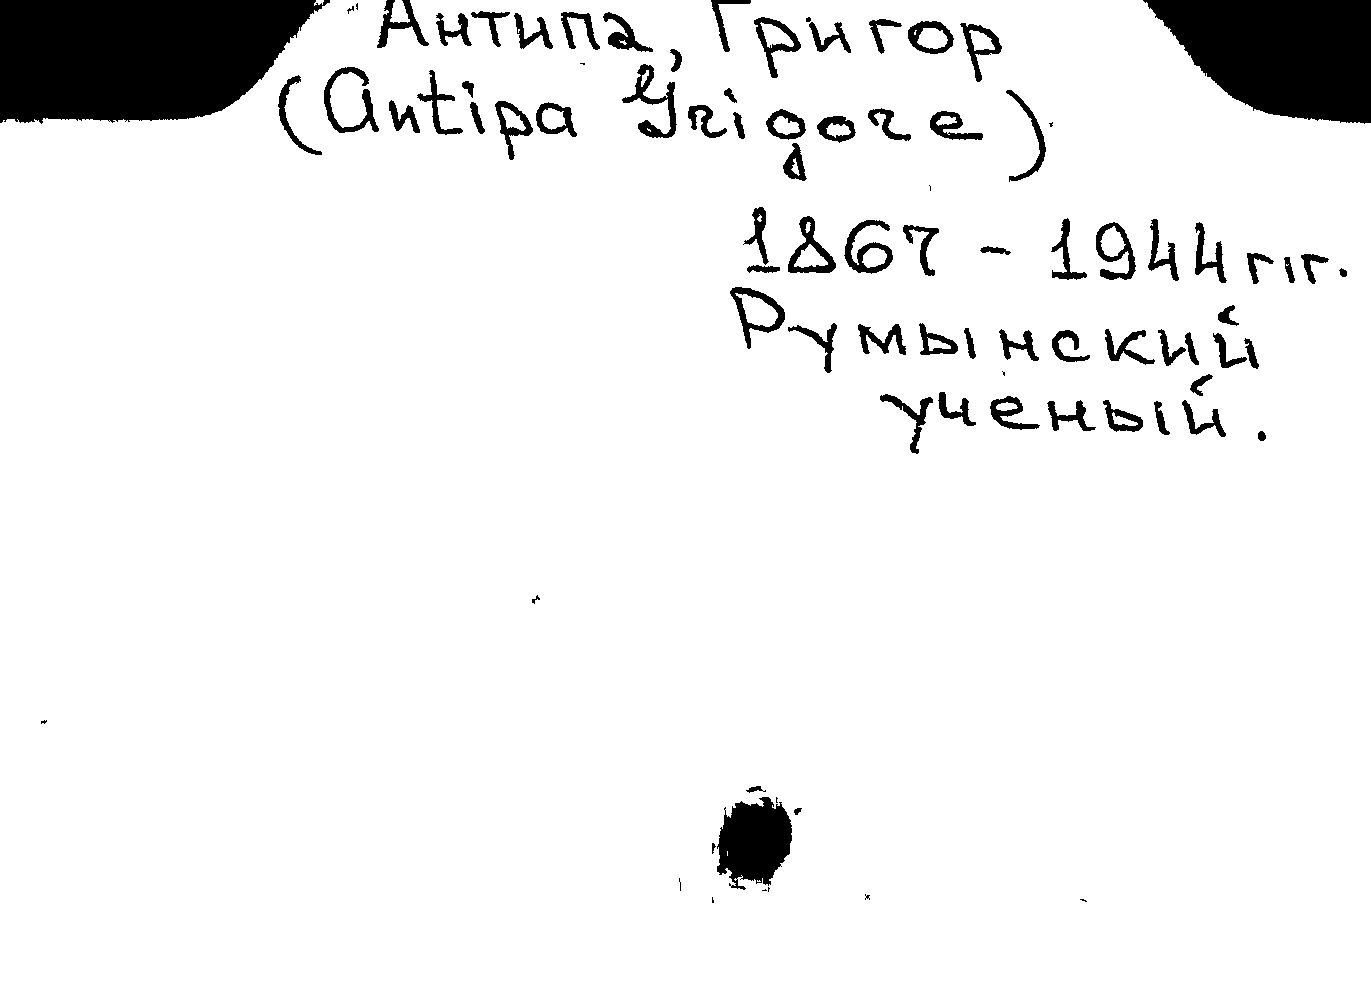 Антипа, Григор
(Antipa Grigore)
1867 - 1944 г.г.
Румынский
ученый.